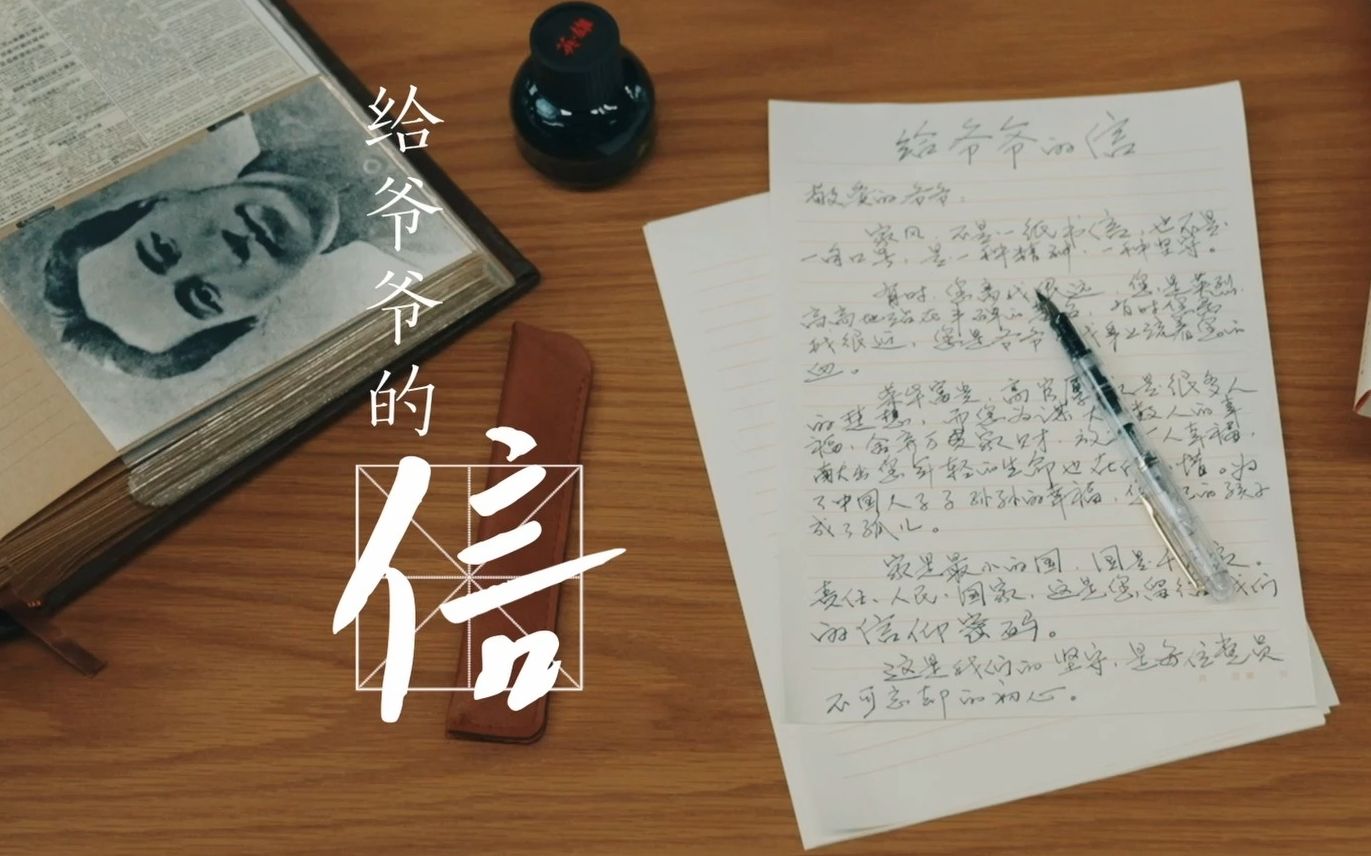 给爷爷的信
英雄
给爷爷的信
敬爱的爷爷：
家风，不是一纸书信，也不是
一句口号，是一种精神、一种坚守。
有时，您离我很远，您是英烈，
高高地站在丰碑的，有时您离
我很近，您是爷爷，我身上流着您的
血。
荣华富贵，高官厚是很多人
的梦想，而您为谋大多数人的幸
福，舍弃万贯家财，放一人幸福，
献出您年轻的生命也在惜。为
了中国人子子孙孙的幸福，您的孩子
成了孤儿。
家是最小的国，国是千家。
责任、人民、国家，这是您留给我们
的信仰密码。
这是我们的坚守，是每位党员
不可忘却的初心。